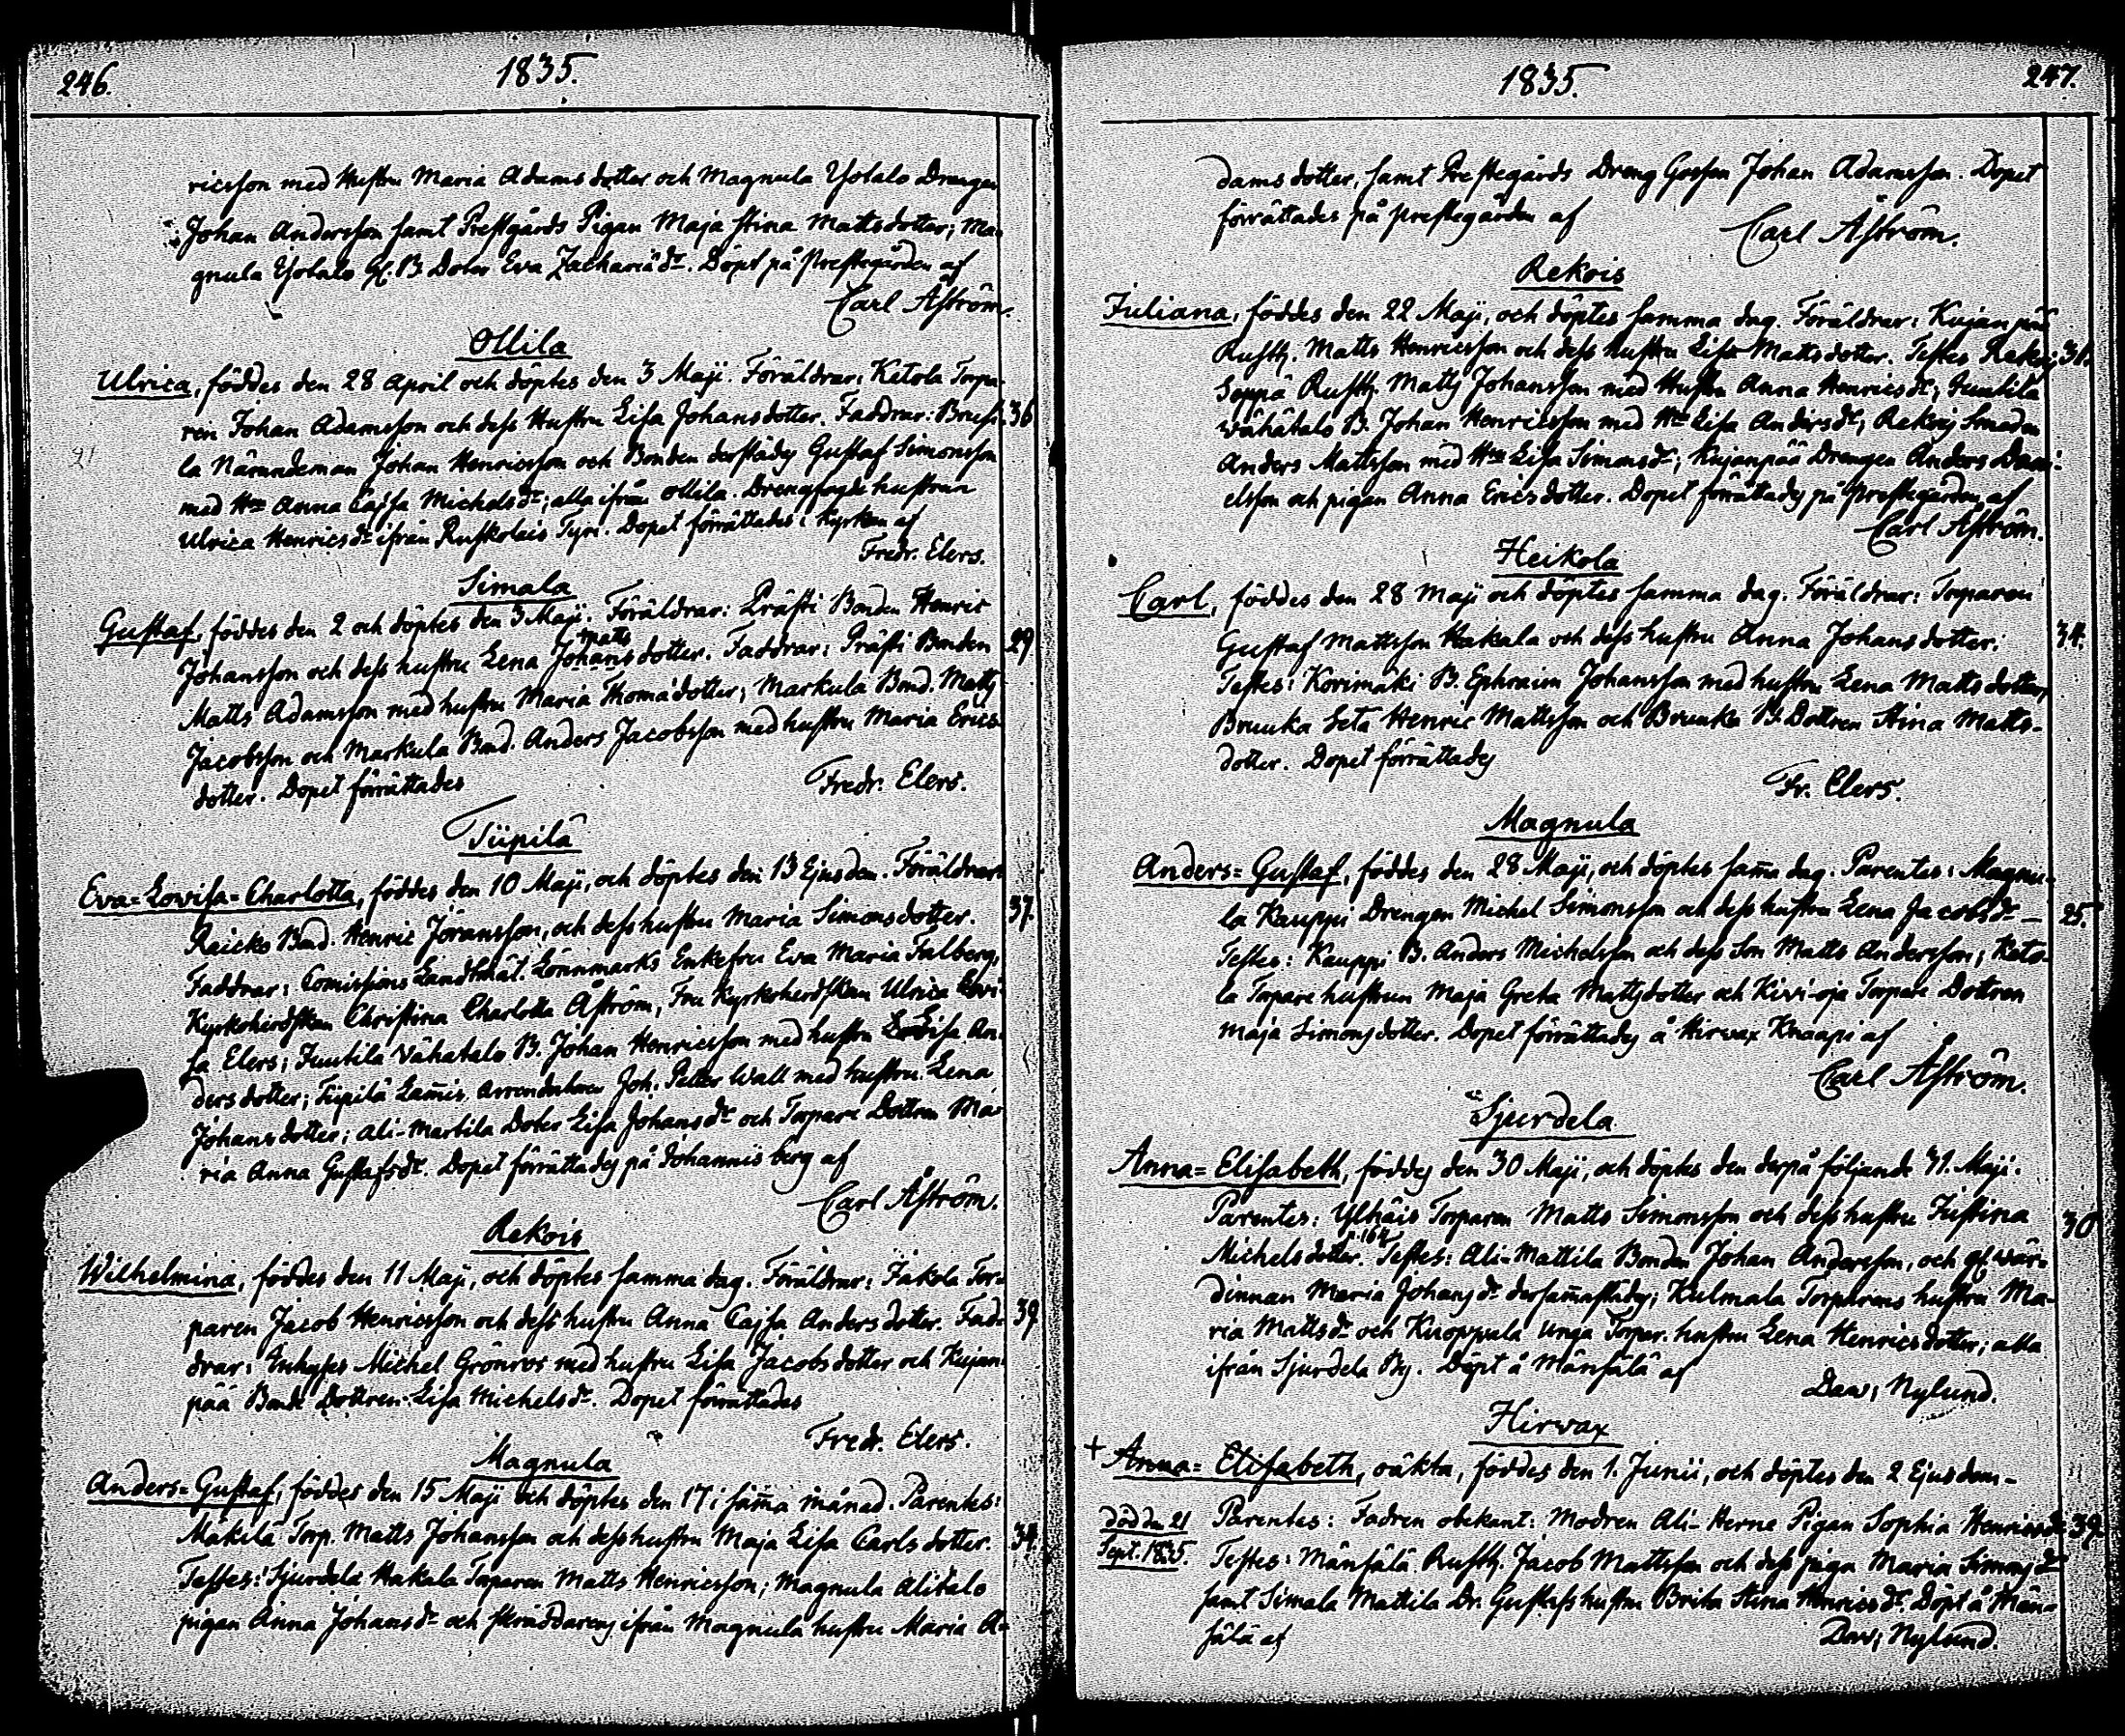 246.
1835.
ricsson med Hustru Maria Adams dotter och Magnula Yotalo Drengen
Johan Andersson samt Prestgårds Pigan Maja Stina Mattsdotter; Ma-
gnula Yotalo B. Doter Eva Zachariä dr. Döpt på Prestegården af
Carl Åström.
Ollila
Ulrica, föddes den 28 April och döptes den 3 Maji. Föräldrar: Ketola Torpa-
ren Johan Adamsson och dess Hustru Lisa Johansdotter. Faddrar: Brusi- 36
la Nämndeman Johan Henricsson och Bonden derstädes Gustaf Simonsson
med Hru Anna Cajsa Michels dr; alla ifrån Ollila. Drengfogde hustrun
Ulrica Henrics dr ifrån Ruskolais Tyri. Dopet förrättades i Kyrkan af
Fredr. Elers.
Simala
Gustaf, föddes den 2 och döptes den 3 Maji. Föräldrar: Präfti Bonden Henric
matts
Johansson och dess hustru Lena Johans dotter. Faddrar: Präfti Bonden 29
Matts Adamsson med hustru Maria Thomä dotter; Markula Bond. Matts
Jacobsson och Markula Bond. Anders Jacobsson med hustru Maria Erics-
dotter. Dopet förrättades
Fredr. Elers.
Tüpilä
Eva=Lovisa=Charlotta, föddes den 10 Maji, och döptes den 13 Ejusdem. Föräldrar:
Raicko Bond. Henric Jöransson, och dess hustru Maria Simonsdotter. 37.
Faddrar: Comissions Landtmät. Lönnmarks Enkefru Eva Maria Falberg,
Kyrkoherdskan Christina Charlotta Åström, Fru Kyrkoherdskan Ulrica Lovi-
sa Elers; Juutila Vähatalo B. Johan Henricsson med hustru Lovisa An-
ders dotter; Tüpilä Lamis Arrendatoren Joh. Petter Wall med hustru Lena
Johansdotter; Ali-Marttila Doter Lisa Johans dr och Torpare Dottren Ma-
ria Anna Gustafs dr. Dopet förrättades på Johannisberg af
Carl Åström.
Rekois
Wilhelmina, föddes den 11 Maji, och döptes samma dag. Föräldrar: Jakola Tor-
paren Jacob Henricsson och dess hustru Anna Cajsa Anders dotter. Fad- 39
drar: Inhyses Michel Grönros med hustru Lisa Jacobs dotter och Kujan-
pää Bonde Dottren Lisa Michels dr. Dopet förrättades
Fredr. Elers.
Magnula
Anders=Gustaf, föddes den 15 Maji och döptes den 17 i samma månad. Parentes:
Mäkilä Torp. Matts Johansson och dess hustru Maja Lisa Carls dotter. 34
Testes: Sjurdela Hakala Torparen Matts Henricsson; Magnula Alitalo
pigan Anna Johans dr och Skräddarens ifrån Magnula hustru Maria A-
1835.
247.
dams dotter, samt Prestegårds Dreng Gossen Johan Adamsson. Dopet
förrättades på Prestegården af
Carl Åström.
Rekois
Juliana, föddes den 22 Maji, och döptes samma dag. Föräldrar: Kujanpää
Rusth. Matts Henricsson och dess hustru Lisa Mattsdotter. Testes Rekois 31.
Seppä Rusth. Matts Johansson med Hustru Anna Henrics dr; Juutila
Vähätalo B. Johan Henricsson med Hru Lisa Anders dr; Rekois Smeden
Anders Mattsson med Hru Lisa Simons dr; Kujanpää Drengen Anders Dani-
elsson och pigan Anna Ericsdotter. Dopet förrättades på Prestegården af
Carl Åström.
Heikola
Carl, föddes den 28 Maji och döptes samma dag. Föräldrar: Torparen
Gustaf Mattsson Hakala och dess hustru Anna Johans dotter. 34.
Testes: Korimäki B. Ephraim Johansson med hustru Lena Matts dotter,
Bruuka Seta Henric Mattsson och Bruuka B. Dottren Stina Matts-
dotter. Dopet förrättades
Fr. Elers.
Magnula
Anders=Gustaf, föddes den 28 Maji, och döptes sam̄a dag. Parentes: Magnu-
la Kauppi Drengen Michel Simonsson och dess hustru Lena Jacobs dr — 25.
Testes: Kauppi B. Anders Michelsson och dess Son Matts Andersson; Keto-
la Torpare hustrun Maja Greta Mattsdotter och Kivi-oja Torpare Dottren
Maja Simonsdotter. Dopet förrättades å Hirvax Knaapi af
Carl Åström.
Sjurdela
Anna=Elisabeth, föddes den 30 Maji, och döptes den derpå följande 31. Maji.
Parentes: Ylhäis Torparen Matts Simonsson och dess hustru Justina 30
Michelsdotter. Testes: Ali-Mattila Bonden Johan Andersson, och gl. wär-
dinnan Maria Johans dr dersam̄astädes; Kulmala Torparens hustru Ma-
ria Matts dr och Knoppula unga Torpar. hustru Lena Henricsdotter; alla
ifrån Sjurdela By. Döpt å Mänsälä af
Dav; Nylund.
Hirvax
+ Anna=Elisabeth, oäkta, föddes den 1. Junii, och döptes den 2 Ejusdem-
död den 21
Sept. 1835.
Parentes: Fadren obekant: Modren Ali-Herne Pigan Sophia Henrics dr 39.
Testes: Mänsälä Rusth. Jacob Mattsson och dess piga Maria Simons dr
samt Simala Mattila Dr. Gustafs hustru Brita Stina Henrics dr. Döpt å Män-
sälä af
Dav; Nylund.